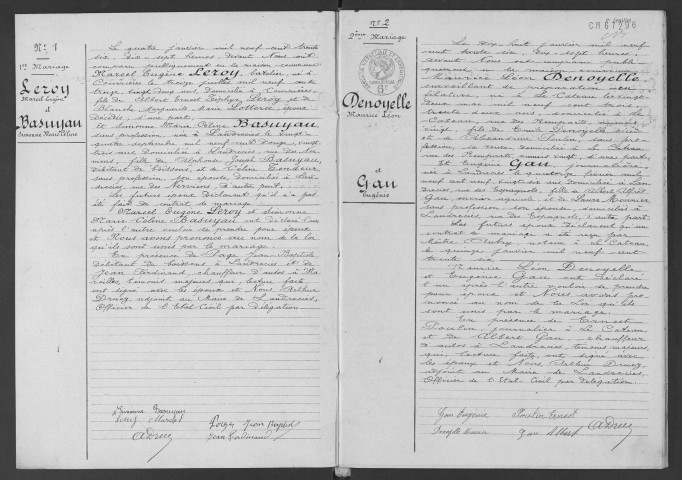 N° 1
1er Mariage
Leroy
Marcel Eugène
et
Basuyau
Simonne Marie Céline
Le quatre janvier mil neuf cent trente
six, dix sept heures, devant Nous ont
comparu publiquement en la maison commune
Marcel Eugène Leroy, batelier, né à
Courrières le treize juillet mil neuf cent
treize, vingt deux ans, domicilié à Courrières,
fils de Albert Ernest Leroy et de
Blanche Marguerite Marie Lottere, son épouse
décédée, d'une part,
et Simonne Marie Céline Basuyau
sans profession, née à Landrecies le vingt
quatre septembre mil neuf cent douze, vingt
trois ans, domiciliée à Landrecies, rue des
fille de Alphonse Joseph Basuyau,
débitant de boissons, et de Céline
sans profession, son épouse, domiciliés à Landrecies
rue des Nerviens, d'autre part.
Les futurs époux déclarent qu'il n'a pas
été fait de contrat de mariage.
Marcel Eugène Leroy et Simonne
Marie Céline Basuyau ont déclaré l'un
après l'autre vouloir se prendre pour époux
et Nous avons prononcé au nom de la loi
qu'ils sont unis par le mariage.
En présence de Page Jean Baptiste,
débitant de boissons à Landrecies et de
Jean Ferdinand, chauffeur d'autos à
témoins majeurs, qui lecture faite
ont signé avec les époux et Nous Arthur
Druez adjoint au Maire de Landrecies,
Officier de l'Etat Civil par délégation.
Simonne Basuyau
Leroy Marcel
Page Jean Baptiste
ADruez
Jean Ferdinand
N° 2
2ème Mariage
Denoyelle
Maurice Léon
et
Gau
Eugénie
Le dix huit janvier mil neuf
cent trente six, dix sept heures,
devant Nous ont comparu publiquement
en la maison commune
Maurice Léon Denoyelle
surveillant de préparation en
filature, né à Le Cateau le
mai mil neuf cent trois,
trente deux ans, domicilié à Le
Cateau, rue des Remparts numéro
vingt, fils de Emile Denoyelle décédé
et de Alexandrine Poulin, sans profession,
sa veuve domiciliée à Le Cateau
rue des Remparts numéro vingt, d'une part,
Et Eugénie Gau, couturière,
née à Landrecies le quatorze février mil
neuf cent neuf, vingt six ans, domiciliée à Landrecies,
rue des Espagnols, fille de Albert
Gau, ouvrier agricole et de Laure Meunier
sans profession, son épouse, domiciliés à
Landrecies, rue des Espagnols, d'autre part.
Les futurs époux déclarent qu'un
contrat de mariage a été reçu par
Maître notaire à Le Cateau,
le quinze janvier mil neuf cent
trente six.
Maurice Léon Denoyelle
et Eugénie Gau ont déclaré
l'un après l'autre vouloir se prendre
pour époux et Nous avons prononcé
au nom de la loi qu'ils
sont unis par le mariage.
En présence de Ernest
Poulin, journalier à Le Cateau
et de Albert Gau, chauffeur
d'autos à Landrecies, témoins majeurs,
qui, lecture faite, ont signé avec
les époux et Nous Arthur Druez,
adjoint au Maire de Landrecies,
Officier de l'Etat Civil par délégation.
Gau Eugénie
Poulin Ernest
ADruez
Denoyelle Maurice
Gau Albert